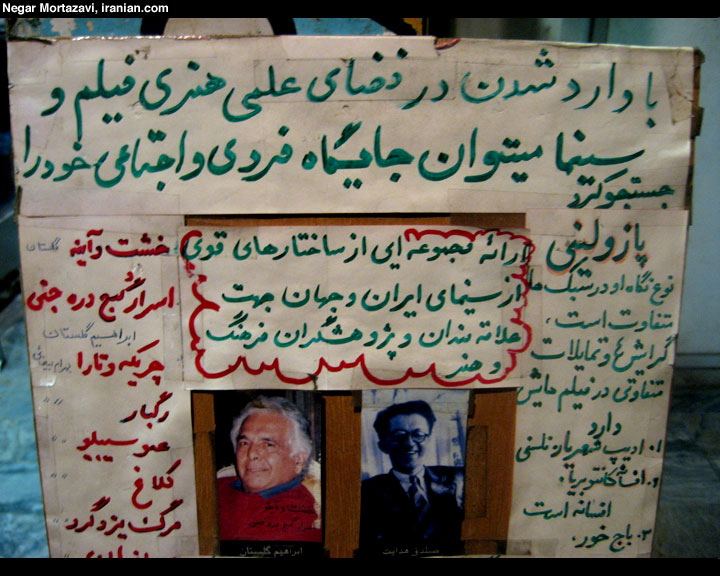 Negar Mortazavi, iranian.com
با وارد شدن در فضای علمی هنری فیلم و
سینما میتوان جایگاه فردی و اجتماعی خود را
جستجو کرد
ارائه مجموعه ای از ساختارهای قوی
از سینمای ایران و جهان جهت
علاقه مندان و پژوهشگران فرهنگ
و هنر
پازولینی
نوع نگاه او در سبک ها
متفاوت است،
گرایش ها و تمایلات
متفاوتی در فیلم هایش
دارد
۱. ادیب شهریار تلسنی
افسانه است
۳. باج خور،
خشت و آینه گلستان
اسرار گنج دره جنی
ابراهیم گلستان
چریکه و تارا بهرام بیضائی
رگبار "
عمو سیبیلو "
کلاغ "
مرگ یزدگرد "
ابراهیم گلستان
صادق هدایت